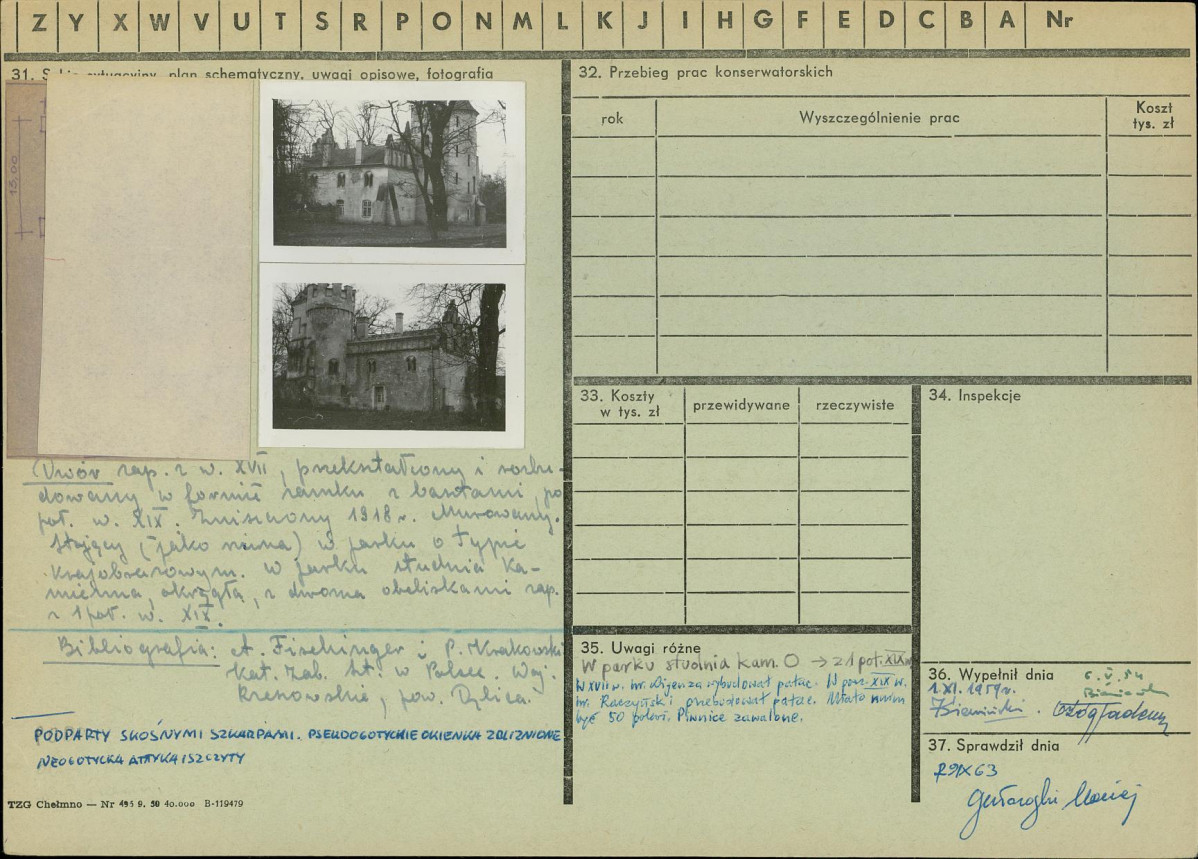 Z Y X W V U T S R P O N M L K J I H G F E D C B A Nr
31. Szkic sytuacyjny, plan schematyczny, uwagi opisowe, fotografia
13.00
Dwór zap. z w. XVII, przekształcony i rozbu-
dowany w formie zamku z basztami, po
poł. w. XIX. Zniszczony 1918 r. Murowany.
Stojący (jako ruina) w parku o typie
krajobrazowym. W parku studnia ka-
mienna, okrągła, z dwoma obeliskami zap.
z 1 poł. w. XIX.
Bibliografia: A. Fischinger i P. Krakowski
Kat. Zab. Szt. w Polsce. Woj.
krakowskie, pow.
PODPARTY SKOŚNYMI SZKARPAMI. PSEUDOGOTYCKIE OKIENKA ZBLIŹNIONE
NEOGOTYCKA ATTYKA I SZCZYTY
TZG Chełmno — Nr 495 9. 50 40.000 B-119479
32. Przebieg prac konserwatorskich
rok
Wyszczególnienie prac
Koszt
tys. zł
33. Koszty
w tys. zł
przewidywane
rzeczywiste
34. Inspekcje
35. Uwagi różne
W parku studnia kam. O → z 1 poł. XIX w
W XVII w. hr. wybudował pałac. W pocz. XIX w.
hr. Raczyński przebudował pałac. Miało w nim
być 50 pokoi. Piwnice zawalone.
36. Wypełnił dnia
1.XI.1959 r.
37. Sprawdził dnia
Maciej